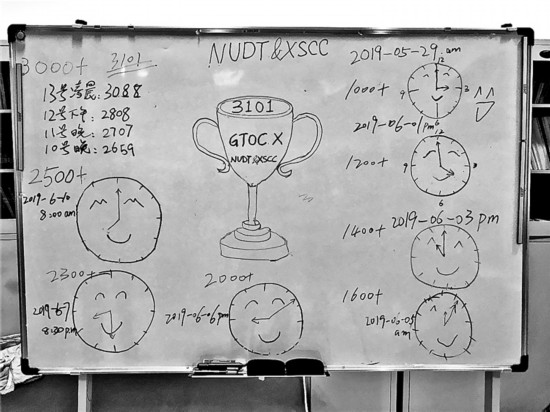 NUDT & XSCC
3000+ 3101
13号凌晨:3088
12号下午:2808
11号晚:2707
10号晚:2659
2500+
2019-6-10
8:00am
2300+
2019-6-7
8:30pm
3101
GTOC X
NUDT & XSCC
2000+
2019-06-06pm
2019-05-29.am
1000+
12
3
6
9
2019-06-01pm
1200+
12
3
6
9
1400+ 2019-06-03 pm
1600+
2019-06-05
am